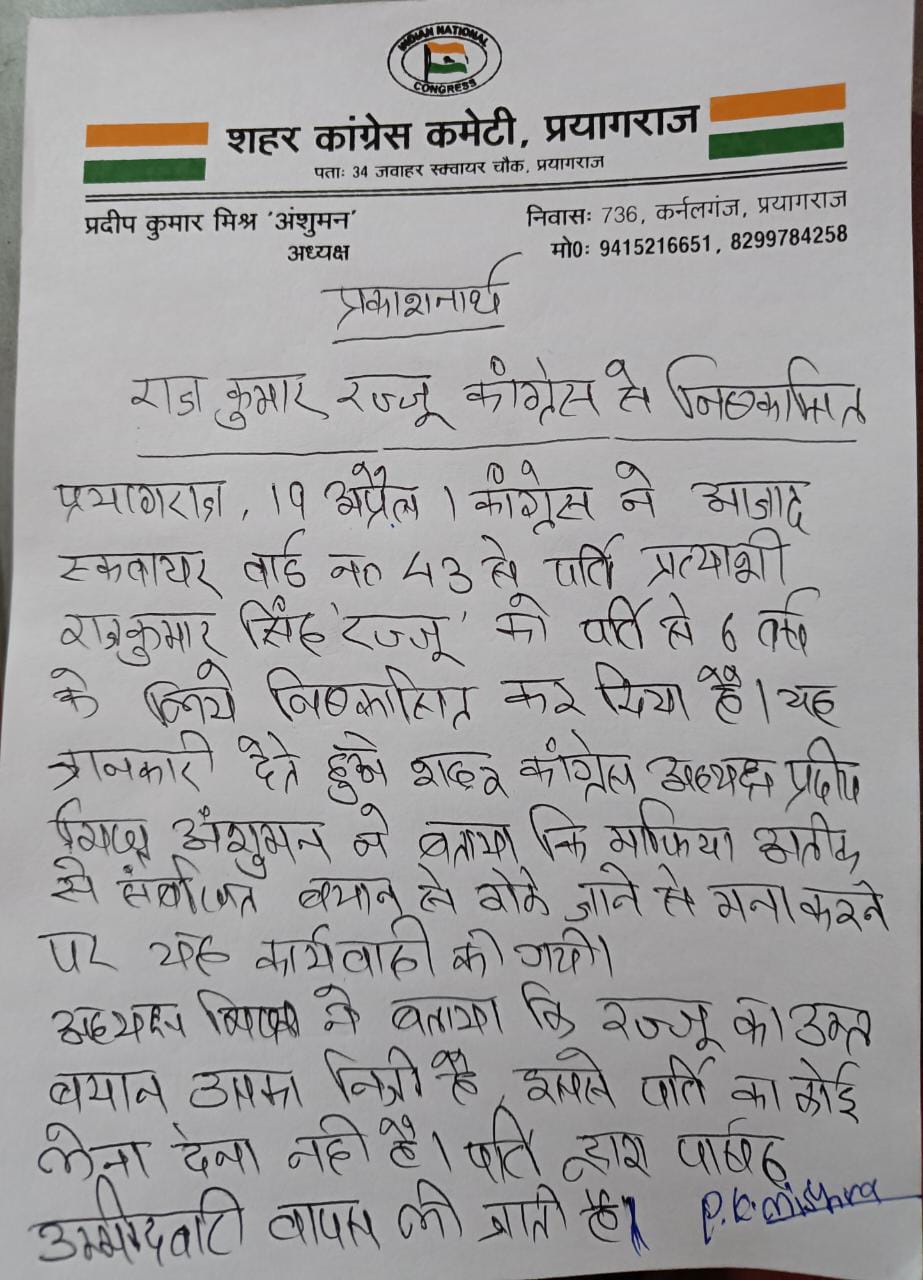 INDIAN NATIONAL
CONGRESS
शहर कांग्रेस कमेटी, प्रयागराज
पताः 34 जवाहर स्क्वायर चौक, प्रयागराज
प्रदीप कुमार मिश्र 'अंशुमन'
अध्यक्ष
निवासः 736, कर्नलगंज, प्रयागराज
मो0ः 9415216651, 8299784258
प्रकाशनार्थ
राज कुमार रज्जू कांग्रेस से निष्कासित
प्रयागराज, 19 अप्रैल । कांग्रेस ने आजाद
स्कवायर वार्ड न0 43 से पार्टी प्रत्याशी
राजकुमार सिंह 'रज्जू' को पार्टी से 6 वर्ष
के लिये निष्कासित कर दिया है । यह
जानकारी देते हुये शहर कांग्रेस अध्यक्ष प्रदीप
मिश्र अंशुमन ने बताया कि माफिया अतीक
से संबंधित बयान से जाने से मना करने
पर यह कार्यवाही की गयी।
अध्यक्ष ने बताया कि रज्जू का उक्त
बयान उनका निजी है, इससे पार्टी का कोई
लेना देना नहीं है । पार्टी द्वारा पार्षद
उम्मीदवारी वापस ली जाती है। P.K. Mishra